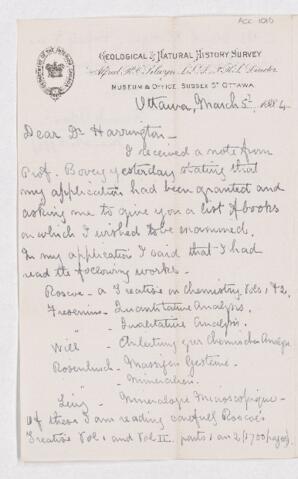 ACC 1010
GEOLOGICAL & NATURAL HISTORY SURVEY
Alfred R. C. Selwyn LL.D. F.R.S. Director
MUSEUM & OFFICE SUSSEX ST OTTAWA
Ottawa, March 5th 1884
Dear Dr Harrington -
I received a note from
Prof. Bovey yesterday stating that
my application had been granted and
asking me to give you a list of books
on which I wished to be examined.
In my application I said that I had
read the following works -
Roscoe - a Treatise on Chemistry, Vols 1 & 2.
Fresenius - Quantitative Analysis.
" - Qualitative Analysis.
Will - Anleitung zur chemischen Analyse
Rosenbusch - Massigen Gesteine.
" - Mineralien.
- Mineralogie Microscopique -
Of these I am reading carefully Roscoe's
Treatise Vol. 1 and Vol II. parts 1 an 2 (1700 pages).